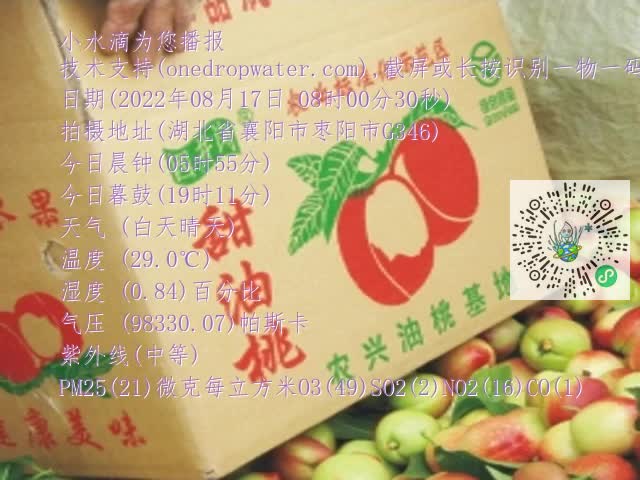 小水滴为您播报
技术支持(onedropwater.com),截屏或长按识别一物一码
日期(2022年08月17日 08时00分30秒)
拍摄地址(湖北省襄阳市枣阳市G346)
今日晨钟(05时55分)
今日暮鼓(19时11分)
天气 (白天晴天)
温度 (29.0℃)
湿度 (0.84)百分比
气压 (98330.07)帕斯卡
紫外线(中等)
PM25(21)微克每立方米O3(49)SO2(2)NO2(16)CO(1)
甜油桃
农兴油桃基地
水果
健康美味